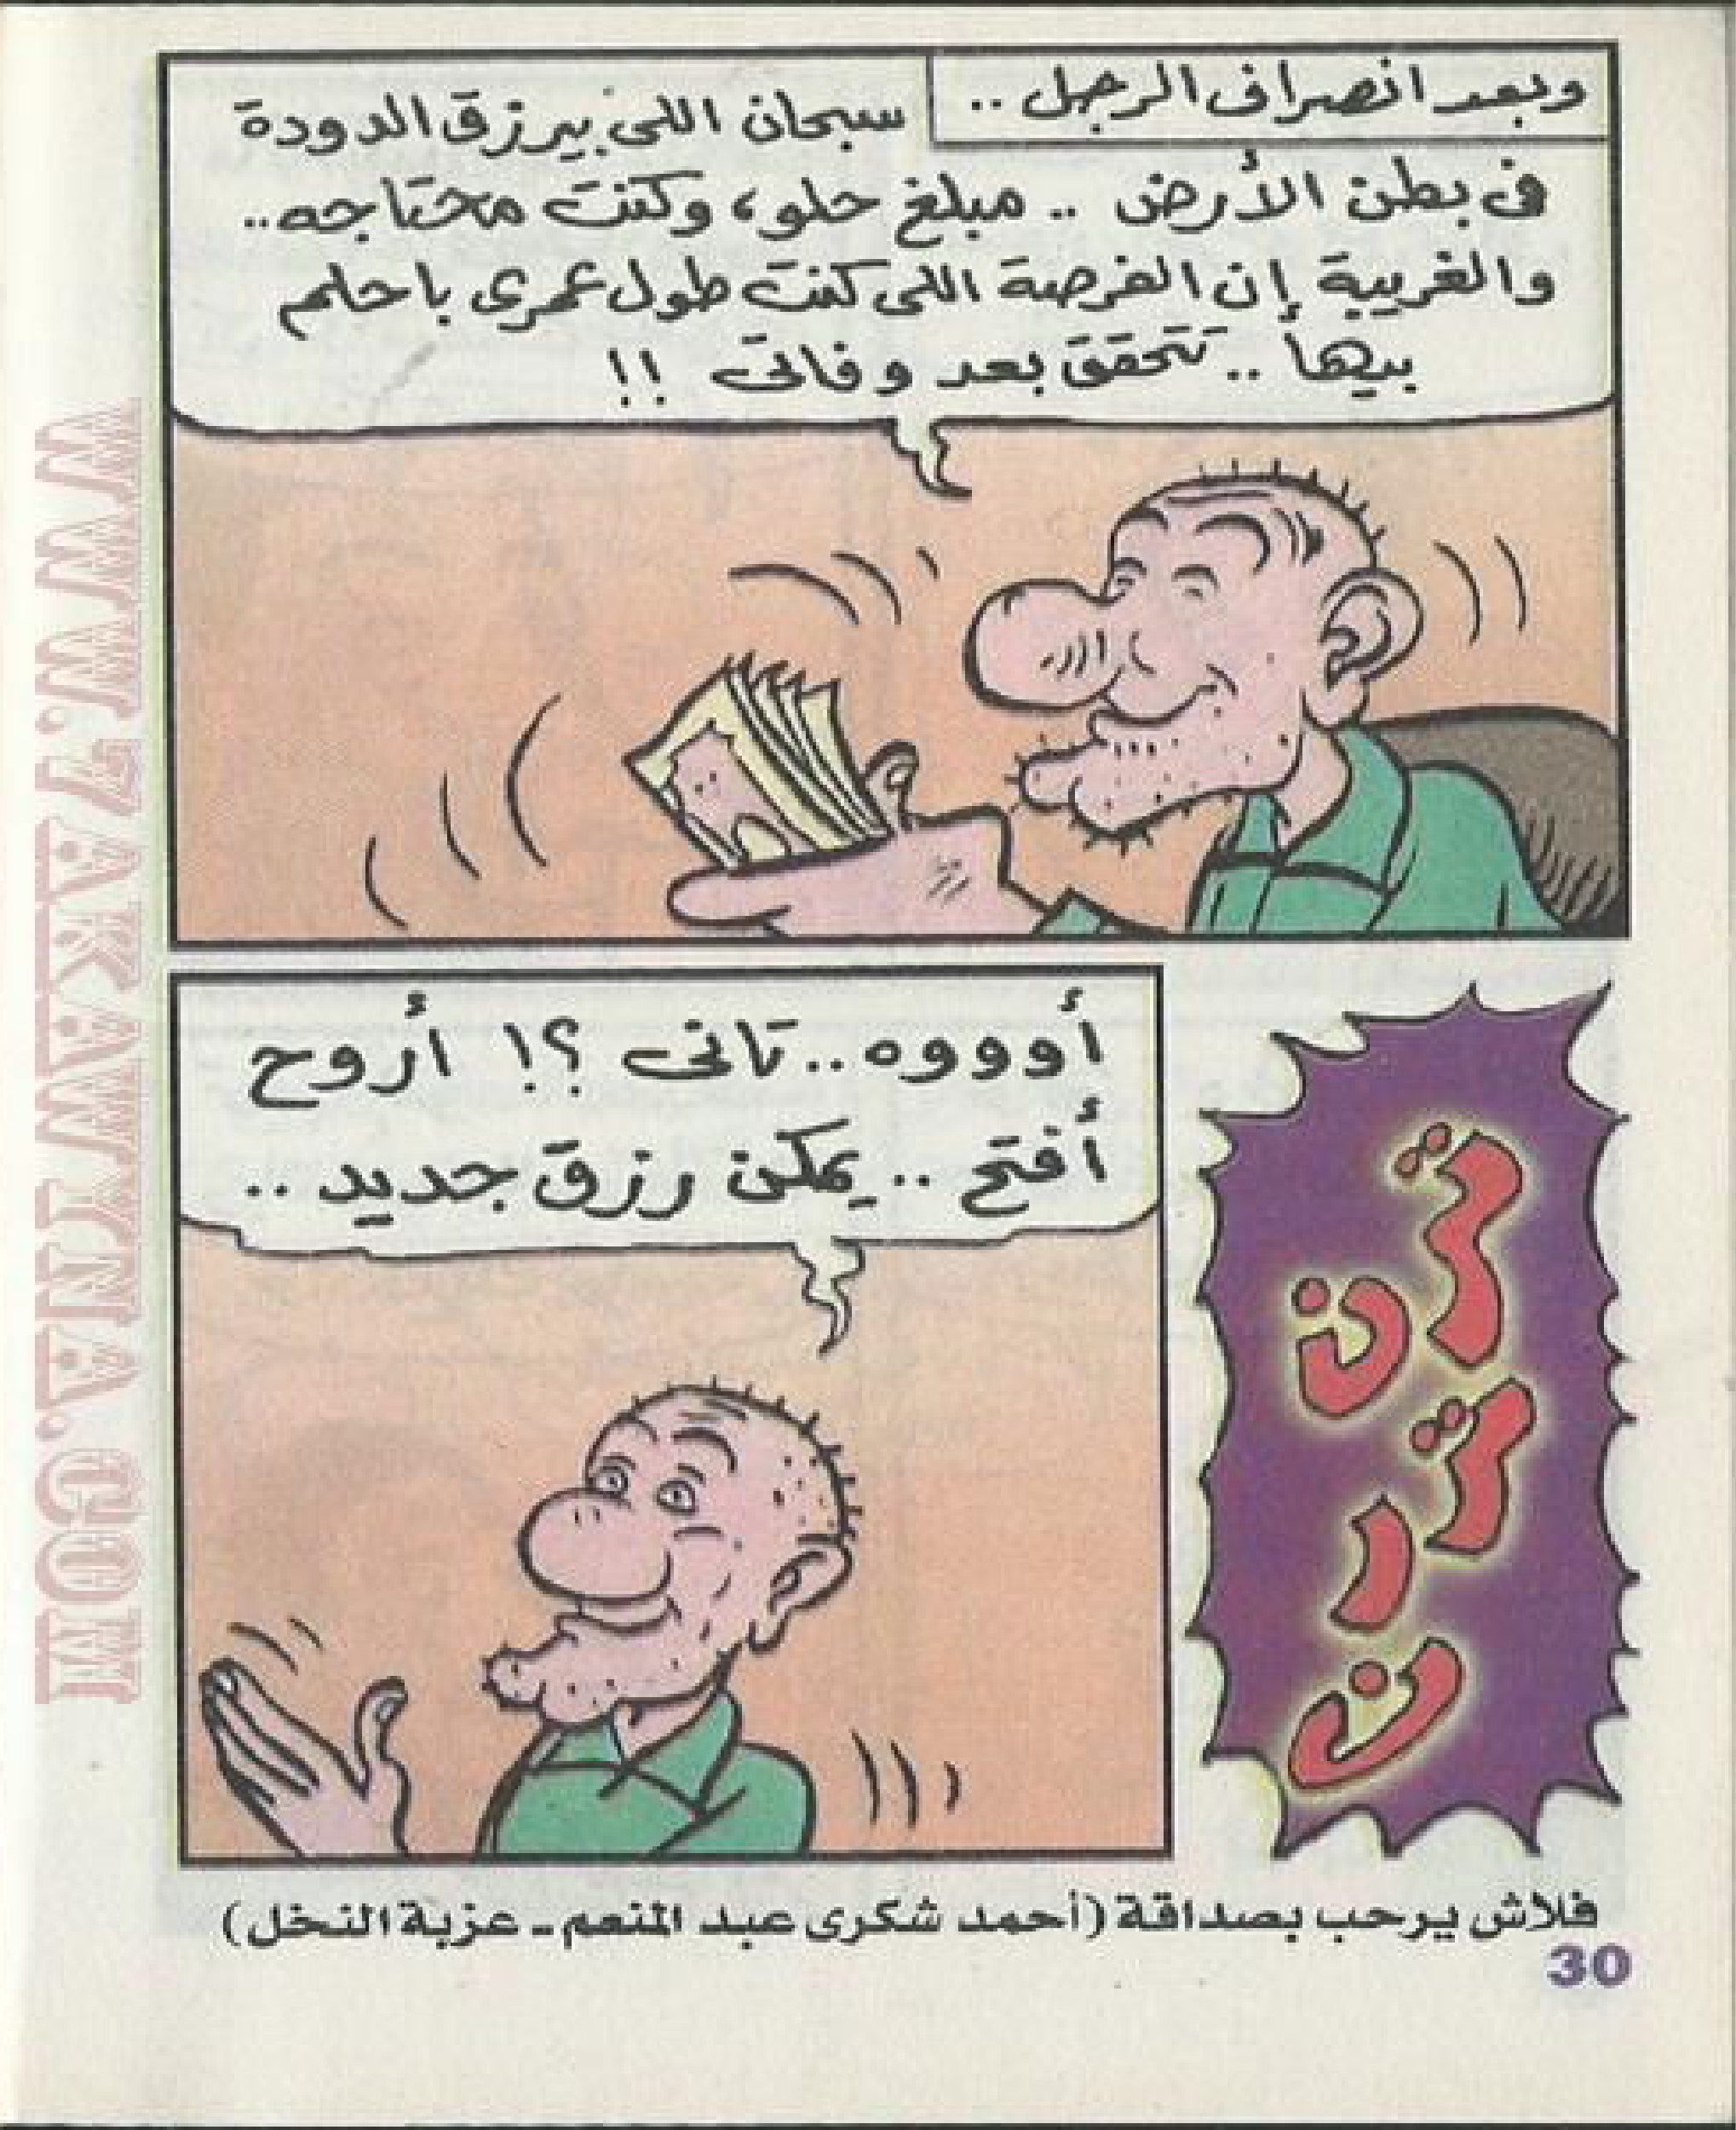 وبعد انصراف الرجل ..
سبحان اللى بيرزق الدودة
فى بطن الأرض .. مبلغ حلو، وكنت محتاجه ..
والغريبة إن الفرصة اللى كنت طول عمرى باحلم
بيها .. تتحقق بعد وفاتى !!
ترن
تررن
أوووه .. تانى ؟! أروح
أفتح .. يمكن رزق جديد ..
فلاش يرحب بصداقة (أحمد شكرى عبد المنعم - عزبة النخل)
30
WWW.7AKAWATNA.COM